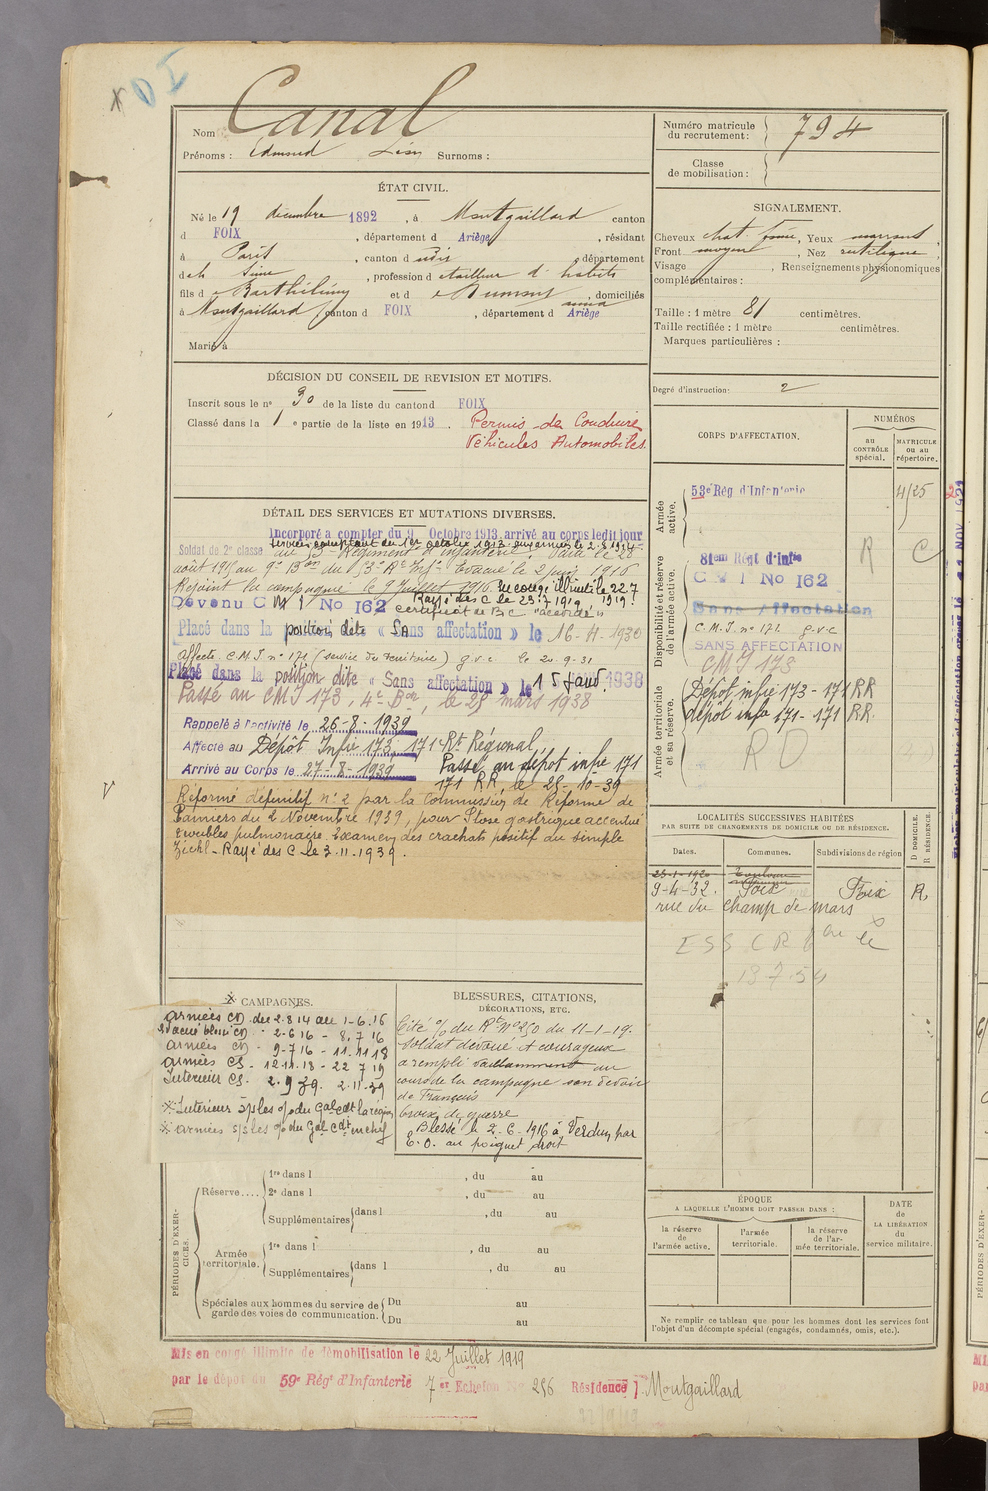 x D I
Nom Canal
Prénoms : Edmond Léon Surnoms :
Numéro matricule du recrutement : 794
Classe de mobilisation :
ÉTAT CIVIL.
Né le 19 décembre 1892, à Montgaillard canton
d FOIX, département d Ariège, résidant
à Paris, canton d udis, département
de la Seine, profession de tailleur d'habits
fils de Barthélemy et de Dumont, domiciliés
à Montgaillard canton d FOIX, département d Ariège
Marié à
SIGNALEMENT.
Cheveux chat. foncé, Yeux marrons,
Front moyen, Nez rectiligne,
Visage , Renseignements physionomiques
complémentaires :
Taille : 1 mètre 81 centimètres.
Taille rectifiée : 1 mètre centimètres.
Marques particulières :
Degré d'instruction : 2
DÉCISION DU CONSEIL DE REVISION ET MOTIFS.
Inscrit sous le n° 30 de la liste du canton d FOIX
Classé dans la 1 e partie de la liste en 1913.
Permis de Conduire
Véhicules Automobiles.
CORPS D'AFFECTATION.
NUMÉROS
au CONTRÔLE spécial.
MATRICULE ou au répertoire.
Armée active.
53e Rég d'Infanterie 4125
Disponibilité et réserve de l'armée active.
81em Regt d'Infie R C
C M I No 162
Sans Affectation
C.M.I. n° 171 g.v.c
SANS AFFECTATION
CMI 173
Armée territoriale et sa réserve.
Dépôt infie 173 - 171 RR
dépôt infie 171 - 171 RR.
RO
DÉTAIL DES SERVICES ET MUTATIONS DIVERSES.
Incorporé a compter du 9 Octobre 1913, arrivé au corps ledit jour
Services comptant du 1er octobre 1913. aux armées le 2.8.1914.
Soldat de 2e classe au 53e Régiment d'infanterie. Passé le 28
août 1915 au 9e Bon du 53e Rt Inf. Evacué le 2 juin 1916
Rejoint la campagne le 9 Juillet 1916. En congé illimité le 22.7
1919.
Rayé des C le 23.7.1919
Devenu C M I No 162 certificat de B C "accordé"
Placé dans la position dite « Sans affectation » le 16-4-1930
Affecté C.M.I. n° 171 (service du territoire) g.v.c le 20.9-31
Placé dans la position dite « Sans affectation » le 15 Janv. 1938
Passé au CMI 173, 4e Bon, le 25 mars 1938
Rappelé à l'activité le 26-8-1939
Affecté au Dépôt Infie 173, 171e Rt Régional
Arrivé au Corps le 27-8-1939 Passé au dépôt infie 171
171 RR, le 25-10-39
Réformé définitif n° 2 par la Commission de Réforme de
Pamiers du 2 Novembre 1939, pour Ptose gastrique accentuée
troubles pulmonaire. Examen des crachats positif au simple
Ziehl - Rayé des C le 3.11.1939.
LOCALITÉS SUCCESSIVES HABITÉES
PAR SUITE DE CHANGEMENTS DE DOMICILE OU DE RÉSIDENCE.
Dates. Communes. Subdivisions de région D DOMICILE. R RÉSIDENCE.
25-1-1920 Toulouse
9-4-32. Foix Foix R.
rue du champ de mars
13.7.54
CAMPAGNES.
armées CD du 2.8.14 au 1-6.16
Evacué blessé CD - 2-6 16 - 8.7 16
armées CD - 9-7 16 - 11-11 18
armées CS. - 12.11.18 - 22 7 19
Intérieur CS. - 2.9 39. 2.11.39
※ Intérieur s/s les o/ du Gal Cdt la région
※ armées s/s les o/ du Gal Cdt en chef
BLESSURES, CITATIONS,
DÉCORATIONS, ETC.
Cité o/ du Rt n° 250 du 11-1-19.
Soldat dévoué et courageux
a rempli vaillamment au
cours de la campagne son devoir
de Français
Croix de guerre
Blessé le 2-6-1916 à Verdun par
E.O. au poignet droit
PÉRIODES D'EXERCICES.
Réserve....
1re dans l , du au
2e dans l , du au
Supplémentaires dans l , du au
Armée territoriale.
1re dans l , du au
Supplémentaires dans l , du au
Spéciales aux hommes du service de garde des voies de communication.
Du au
Du au
ÉPOQUE
A LAQUELLE L'HOMME DOIT PASSER DANS :
la réserve de l'armée active.
l'armée territoriale.
la réserve de l'armée territoriale.
DATE de LA LIBÉRATION du service militaire.
Ne remplir ce tableau que pour les hommes dont les services font
l'objet d'un décompte spécial (engagés, condamnés, omis, etc.).
Mis en congé illimité de démobilisation le 22 Juillet 1919
par le dépôt du 59e Régt d'Infanterie 7 er Echelon No 256 Résidence Montgaillard